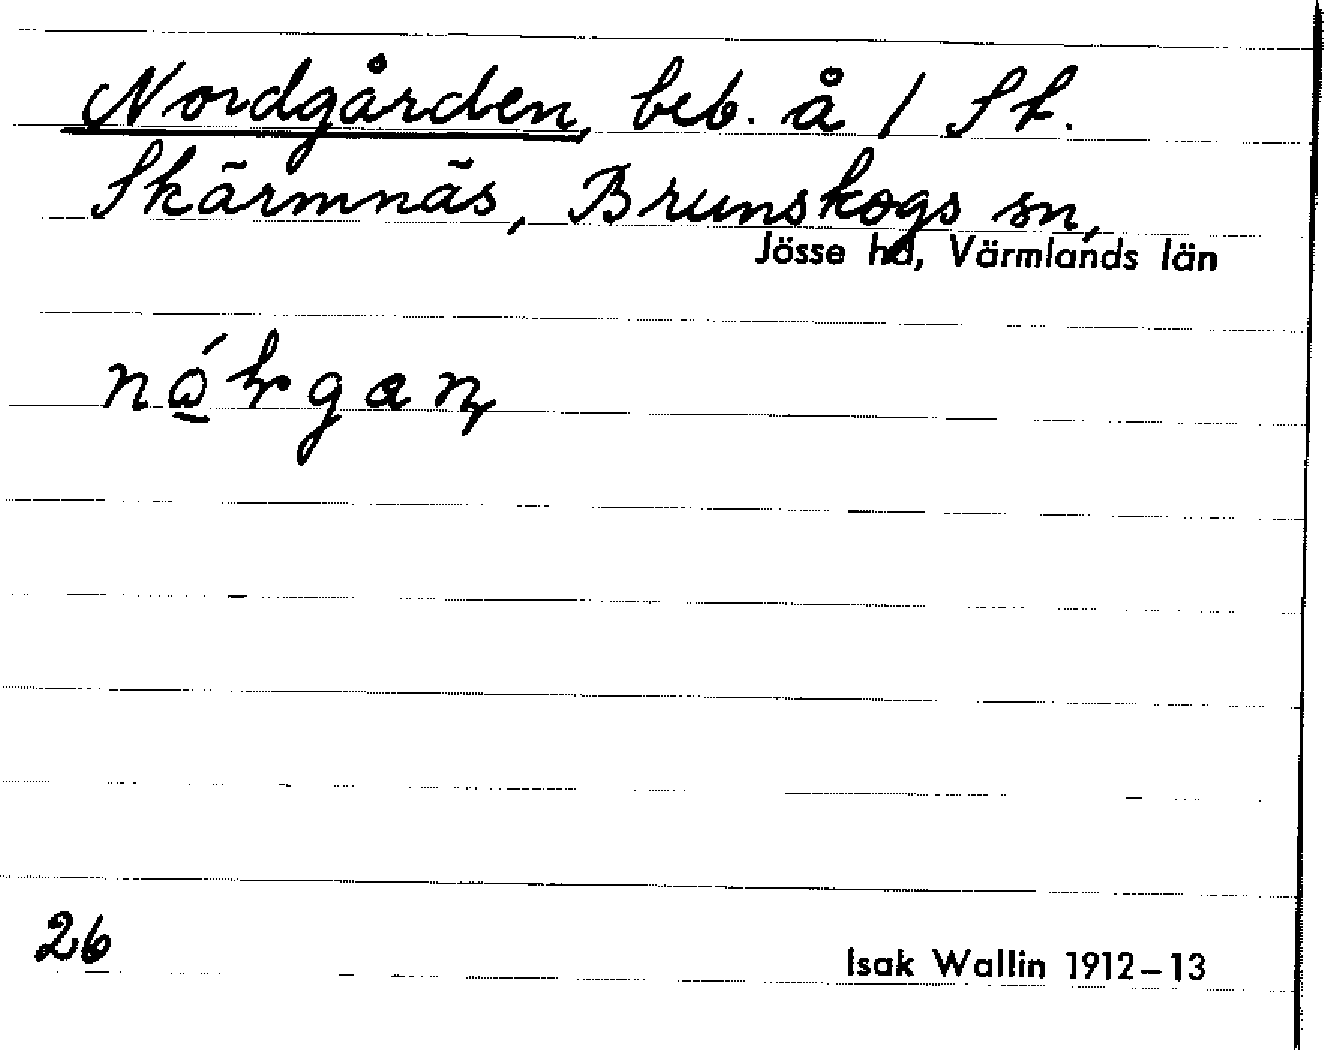 Nordgården, beb. å / St.
Skärmnäs, Brunskogs sn,
Jösse hd, Värmlands län
26
Isak Wallin 1912–13